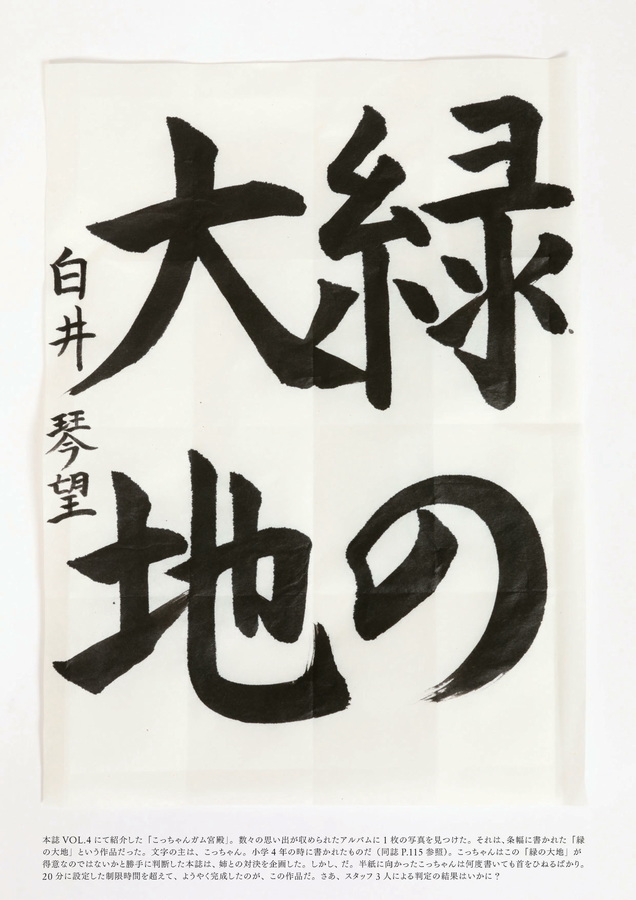 緑の
大地
白井琴望
本誌 VOL.4 にて紹介した「こっちゃんガム宮殿」。数々の思い出が収められたアルバムに 1 枚の写真を見つけた。それは、条幅に書かれた「緑
の大地」という作品だった。文字の主は、こっちゃん。小学 4 年の時に書かれたものだ（同誌 P.115 参照）。こっちゃんはこの「緑の大地」が
得意なのではないかと勝手に判断した本誌は、姉との対決を企画した。しかし、だ。半紙に向かったこっちゃんは何度書いても首をひねるばかり。
20 分に設定した制限時間を超えて、ようやく完成したのが、この作品だ。さあ、スタッフ 3 人による判定の結果はいかに？